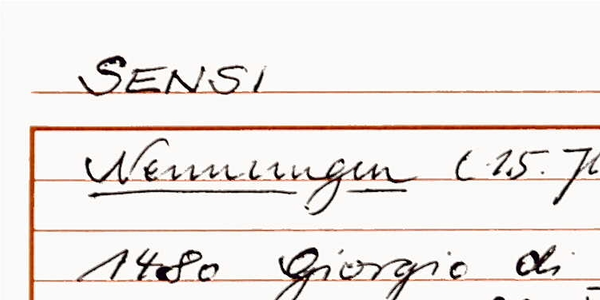 SENSI
Nennungen (15. Jh
1480 Giorgio di